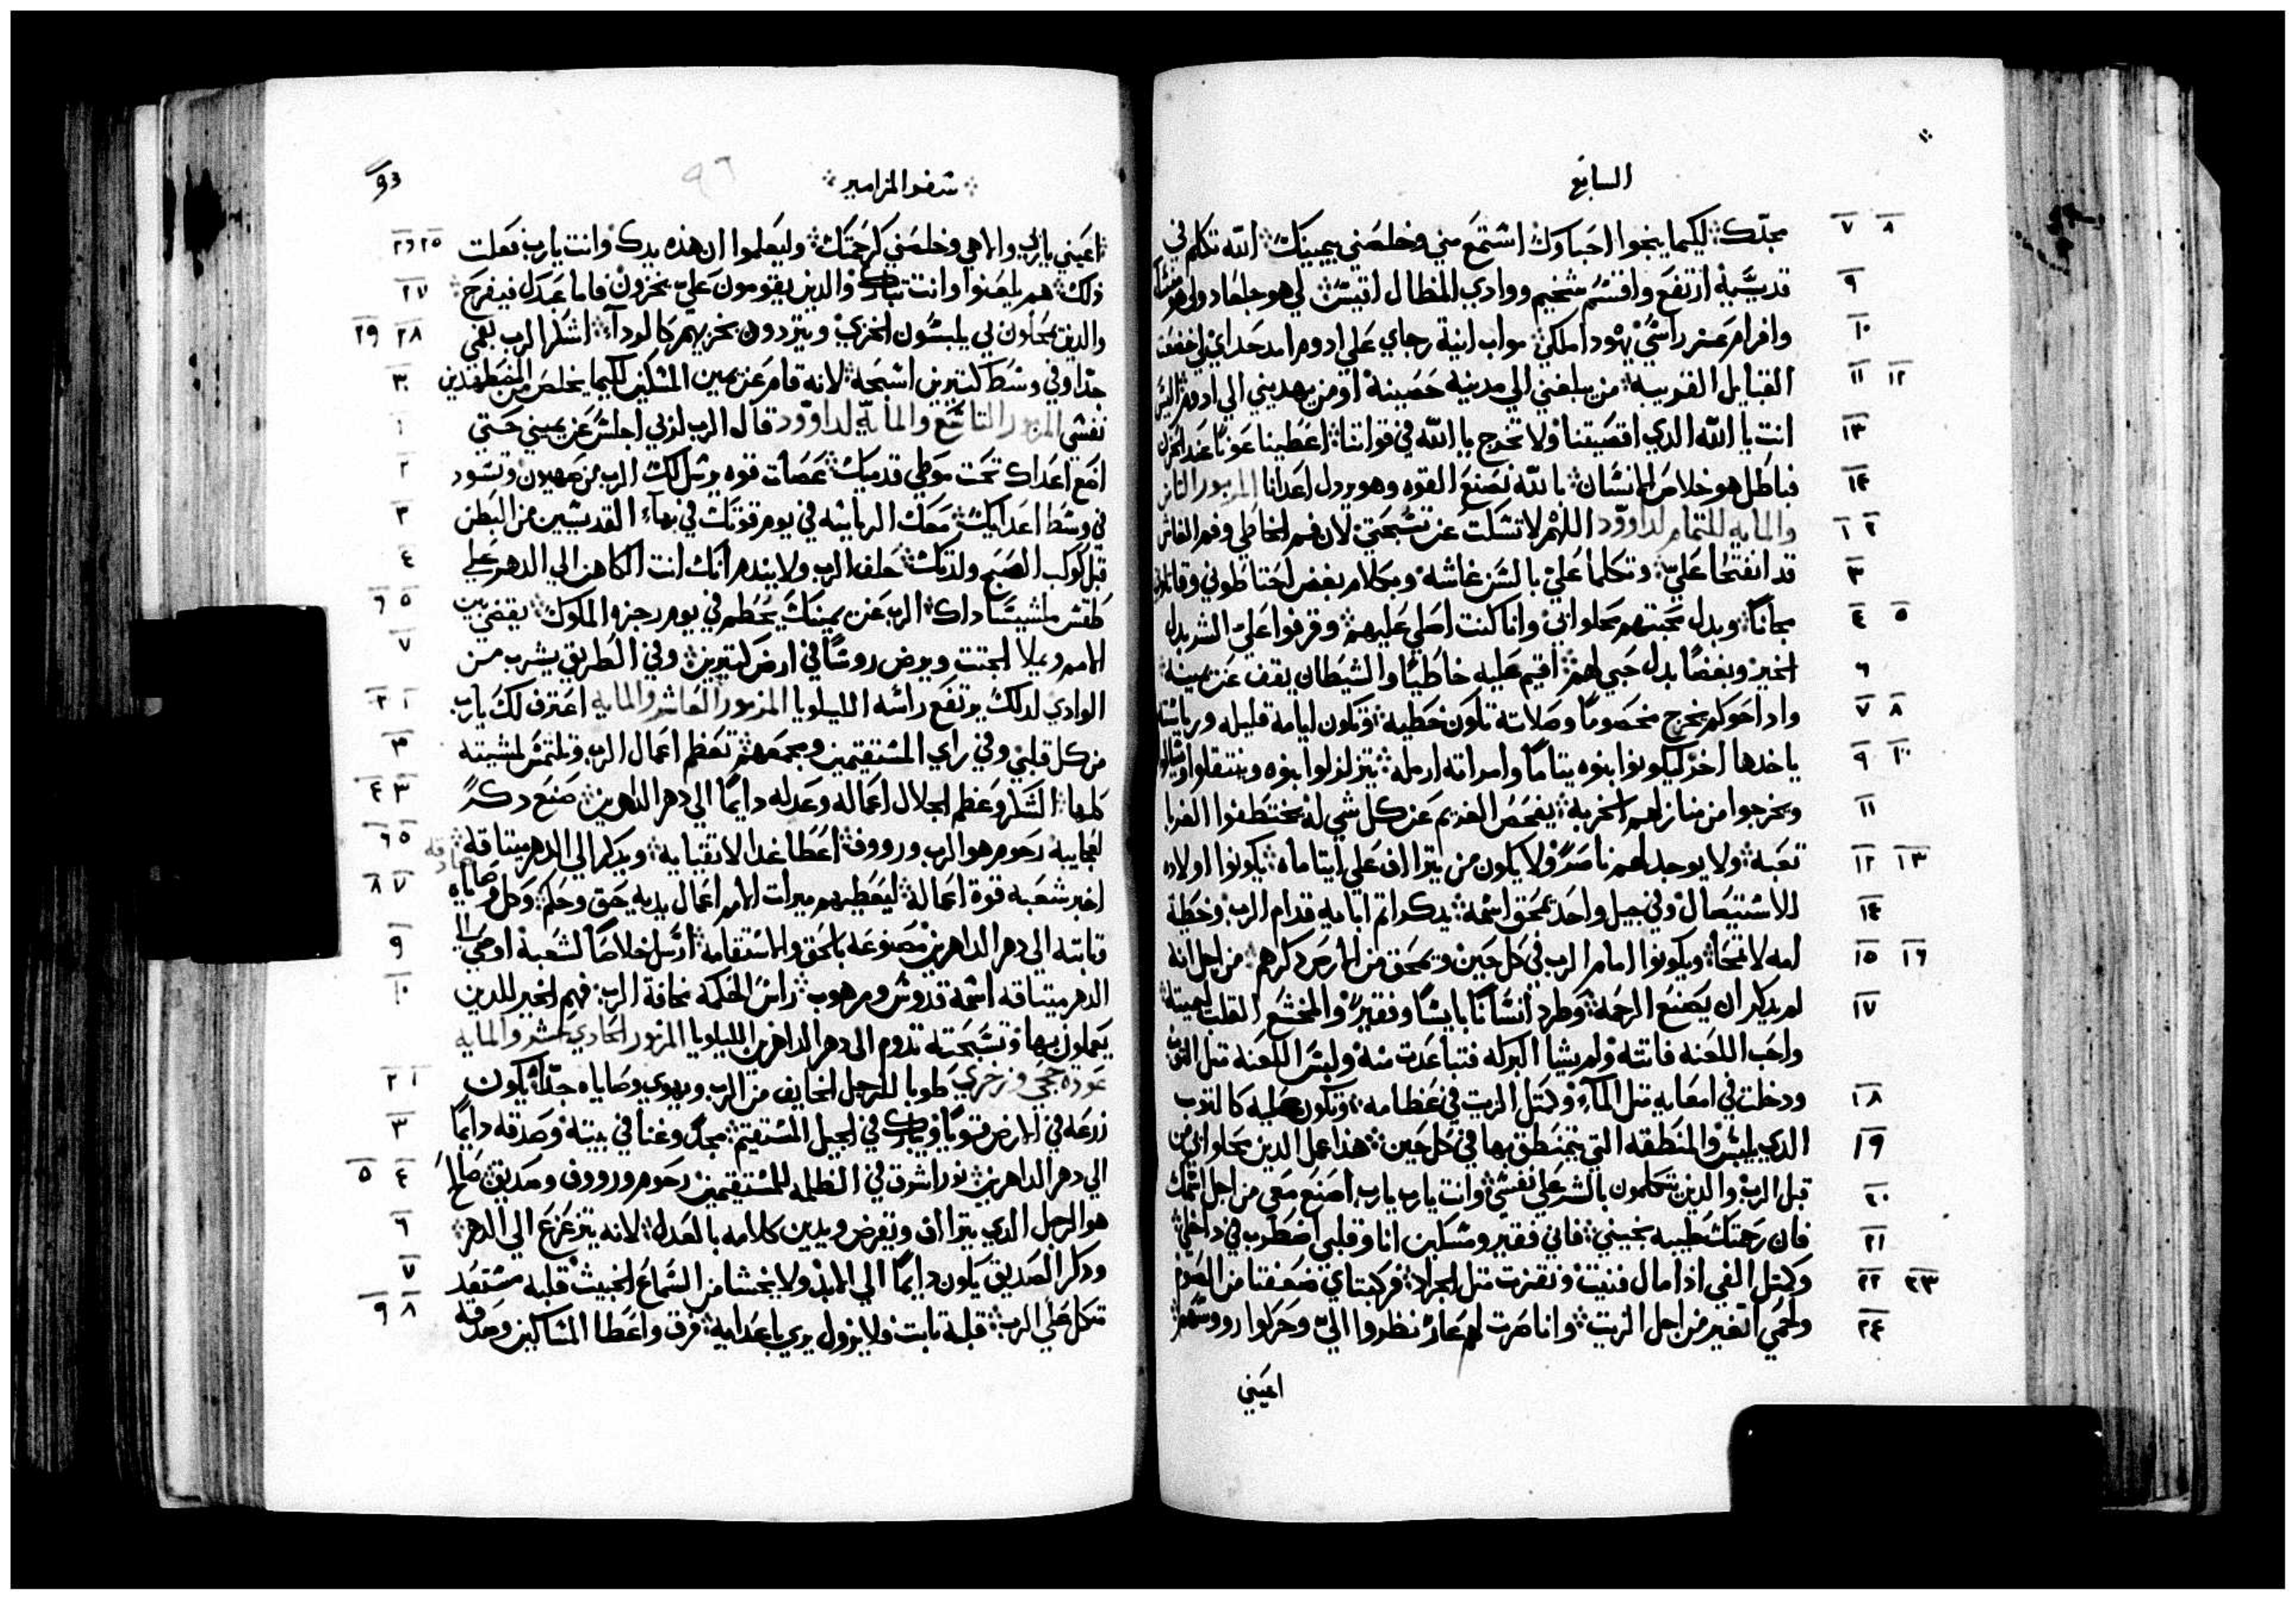 السابع
٨ ٧ مجدك: ليكيما ينجوا احباوك اشتمع مني وخلصني بيمينك: الله تكلم في
٩ قدسه ارتفع واقسم شخيم ووادي المظال اقيس: لي هو جلعاد ولي هو منشا
١٠ وافرام عز راسي يهودا ملكي: مواب انية رجاي علي ادوم امد حداي لي اخضعت
١٢ ١١ القبايل الغريبه: من يبلغني الي مدينه حصينة او من يهديني الي ادوم اليس
١٣ انت يا الله الدي اقصيتنا ولا تخرج يا الله في قواتنا: اعطينا عونا عند الحزن
١٤ فباطل هو خلاص الانسان: بالله نصنع القوه وهو يردل اعدانا المزمور التامن
٢ ١ والمايه للتمام لداوود اللهم لا تسكت عن تسبحتي: لان فم الخاطي وفم الغاش
٣ قد انفتحا علي: وتكلما علي بالسن غاشه وبكلام بغض احتاطوني وقاتلوني
٥ ٤ مجانا: وبدل محبتهم محلوا بي وانا كنت اصلي عليهم: وقرفوا علي الشر بدل
٦ الخير وبغضا بدل حبي لهم: اقيم عليه خاطيا والشيطان يقف عن يمينه:
٨ ٧ وادا حوكم يخرج مخصوما وصلاته تكون خطيه: وتكون ايامه قليله ورياسته
١٠ ٩ ياخدها اخر: ليكونوا بنوه يتاما وامراته ارمله: يتزلزلوا بنوه وينتقلوا ويسالوا
١١ ويخرجوا من منازلهم الخربه: يفحص الغريم عن كل شي له يختطفوا الغربا
١٣ ١٢ تعبه: ولا يوجد لهم ناصر ولا يكون من يتراف علي ايتامه: يكونوا اولاده
١٤ للاستيصال وفي جيل واحد يمحق اسمه: يدكر اتم ابايه قدام الرب وخطية
١٦ ١٥ امه لا تمحا: ويكونوا امام الرب في كل حين ويمحق من الارض دكرهم: من اجل انه
١٧ لم يدكر ان يصنع الرحمة: وطرد انسانا بايسا وفقيرا والمخشع القلب ليميته
واحب اللعنه فاتته ولم يشا البركه فتباعدت منه ولبس اللعنه متل التوب
١٨ ودخلت في امعايه متل الماء وكمتل الزيت في عظامه: وتكون عليه كالتوب
١٩ الدي يلبس والمنطقه التي يتمنطق بها في كل حين: هدا عمل الدين محلوا بي من
٢٠ قبل الرب والدين يتكلمون بالشر علي نفسي: وانت يارب يارب اصنع معي من اجل اسمك
٢١ فان رحمتك طيبه نجيني: فاني فقير ومسكين انا وقلبي اضطرب في داخلي
٢٣ ٢٢ وكمتل الفي ادا مال فنيت ونفرت متل الجراد: فركبتاي ضعفتا من الصوم
٢٤ ولحمي اتغير من اجل الزيت: وانا صرت لهم عار نظروا الي وحركوا رووسهم:
اعيني
سفر المزامير
٩٣
٩٦
٢٥ ٢٦ اعيني يا ربي والاهي وخلصني كرحمتك: وليعلموا ان هذه يدك وانت يارب فعلت
٢٧ ذلك: هم يلعنوا وانت تبارك والدين يقومون علي يخزون فاما عبدك فيفرح:
٢٨ ٢٩ والدين يمحلون بي يلبسون الخزي ويتردون بخزيهم كالرداء: اشكر الرب بفمي
٣٠ جدا وفي وسط كتيرين اسبحه: لانه قام عن يمين المسكين لكيما يخلص من المضطهدين
١ نفسي المزمور التاسع والمايه لداوود قال الرب لربي اجلس عن يميني حتي
٢ اضع اعداك تحت موطي قدميك: عصات قوه يرسل لك الرب من صهيون وتسود
٣ في وسط اعدايك: معك الرياسه في يوم قوتك في بهاء القديسين من البطن
٤ قبل كوكب الصبح ولدتك: حلف الرب ولا يندم انك انت الكاهن الي الدهر علي
٥ ٦ طقس ملشيساداك: الرب عن يمينك يحطم في يوم رجزه الملوك: يقضي بين
٧ الامم ويملا الجتت ويرض روسا في ارض كتيرين: وفي الطريق يشرب من
١ ٢ الوادي لدلك يرتفع راسه الليلويا المزمور العاشر والمايه اعترف لك يارب
٣ من كل قلبي وفي راي المستقيمين ومجمعهم: تعظم اعمال الرب وتلتمس لمشيته
٣ ٤ كلها: الشكر وعظم الجلال اعماله وعدله دايما الي دهر الداهرين: صنع دكرا
٥ ٦ لعجايبه رحوم هو الرب وروف: اعطا غدا لاتقيايه: ويدكر الي الدهر ميتاقه
٧ ٨ اخبر شعبه قوة اعماله: ليعطيهم ميرات الامم اعمال يديه حق وحكم: وكل وصاياه
٩ تابته الي دهر الداهرين مصنوعه بالحق والاستقامه: ارسل خلاصا لشعبه اوصي الي
١٠ الدهر ميتاقه اسمه قدوس ومرهوب: راس الحكمة مخافة الرب: فهم الخير للدين
يعملون بها وتسبحته تدوم الي دهر الداهرين الليلويا المزمور الحادي عشر والمايه
١ ٢ عودة حجي وزخري طوبا للرجل الخايف من الرب ويهوي وصاياه جدا: يكون
٣ زرعه في الارض قويا ويبارك في الجيل المستقيم: مجد وغنا في بيته وصدقه دايما
٤ ٥ الي دهر الداهرين: نورا شرق في الظلمه للمستقيمين رحوم وروف وصديق: صالح
٦ هو الرجل الدي يتراف ويقرض ويدين كلامه بالعدل: لانه يتزعزع الي الدهر:
٧ ودكر الصديق يكون دايما الي الابد ولا يخشا من السماع الخبيث: قلبه مستعد
٨ ٩ تتكل علي الرب: قلبه تابت فلا يزول يري باعدايه: فرق واعطا المساكين وصدقه